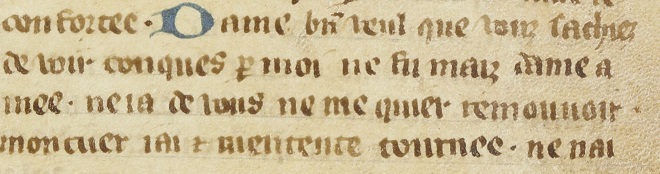 confortee · Dame bñ veul que vous sachiez
de voir conques ꝑ moi ne fu maiz dame a
mee · ne ia de vous ne me quier remouuoir ·
mon cuer iai ⁊ mentente tournee · ne nai